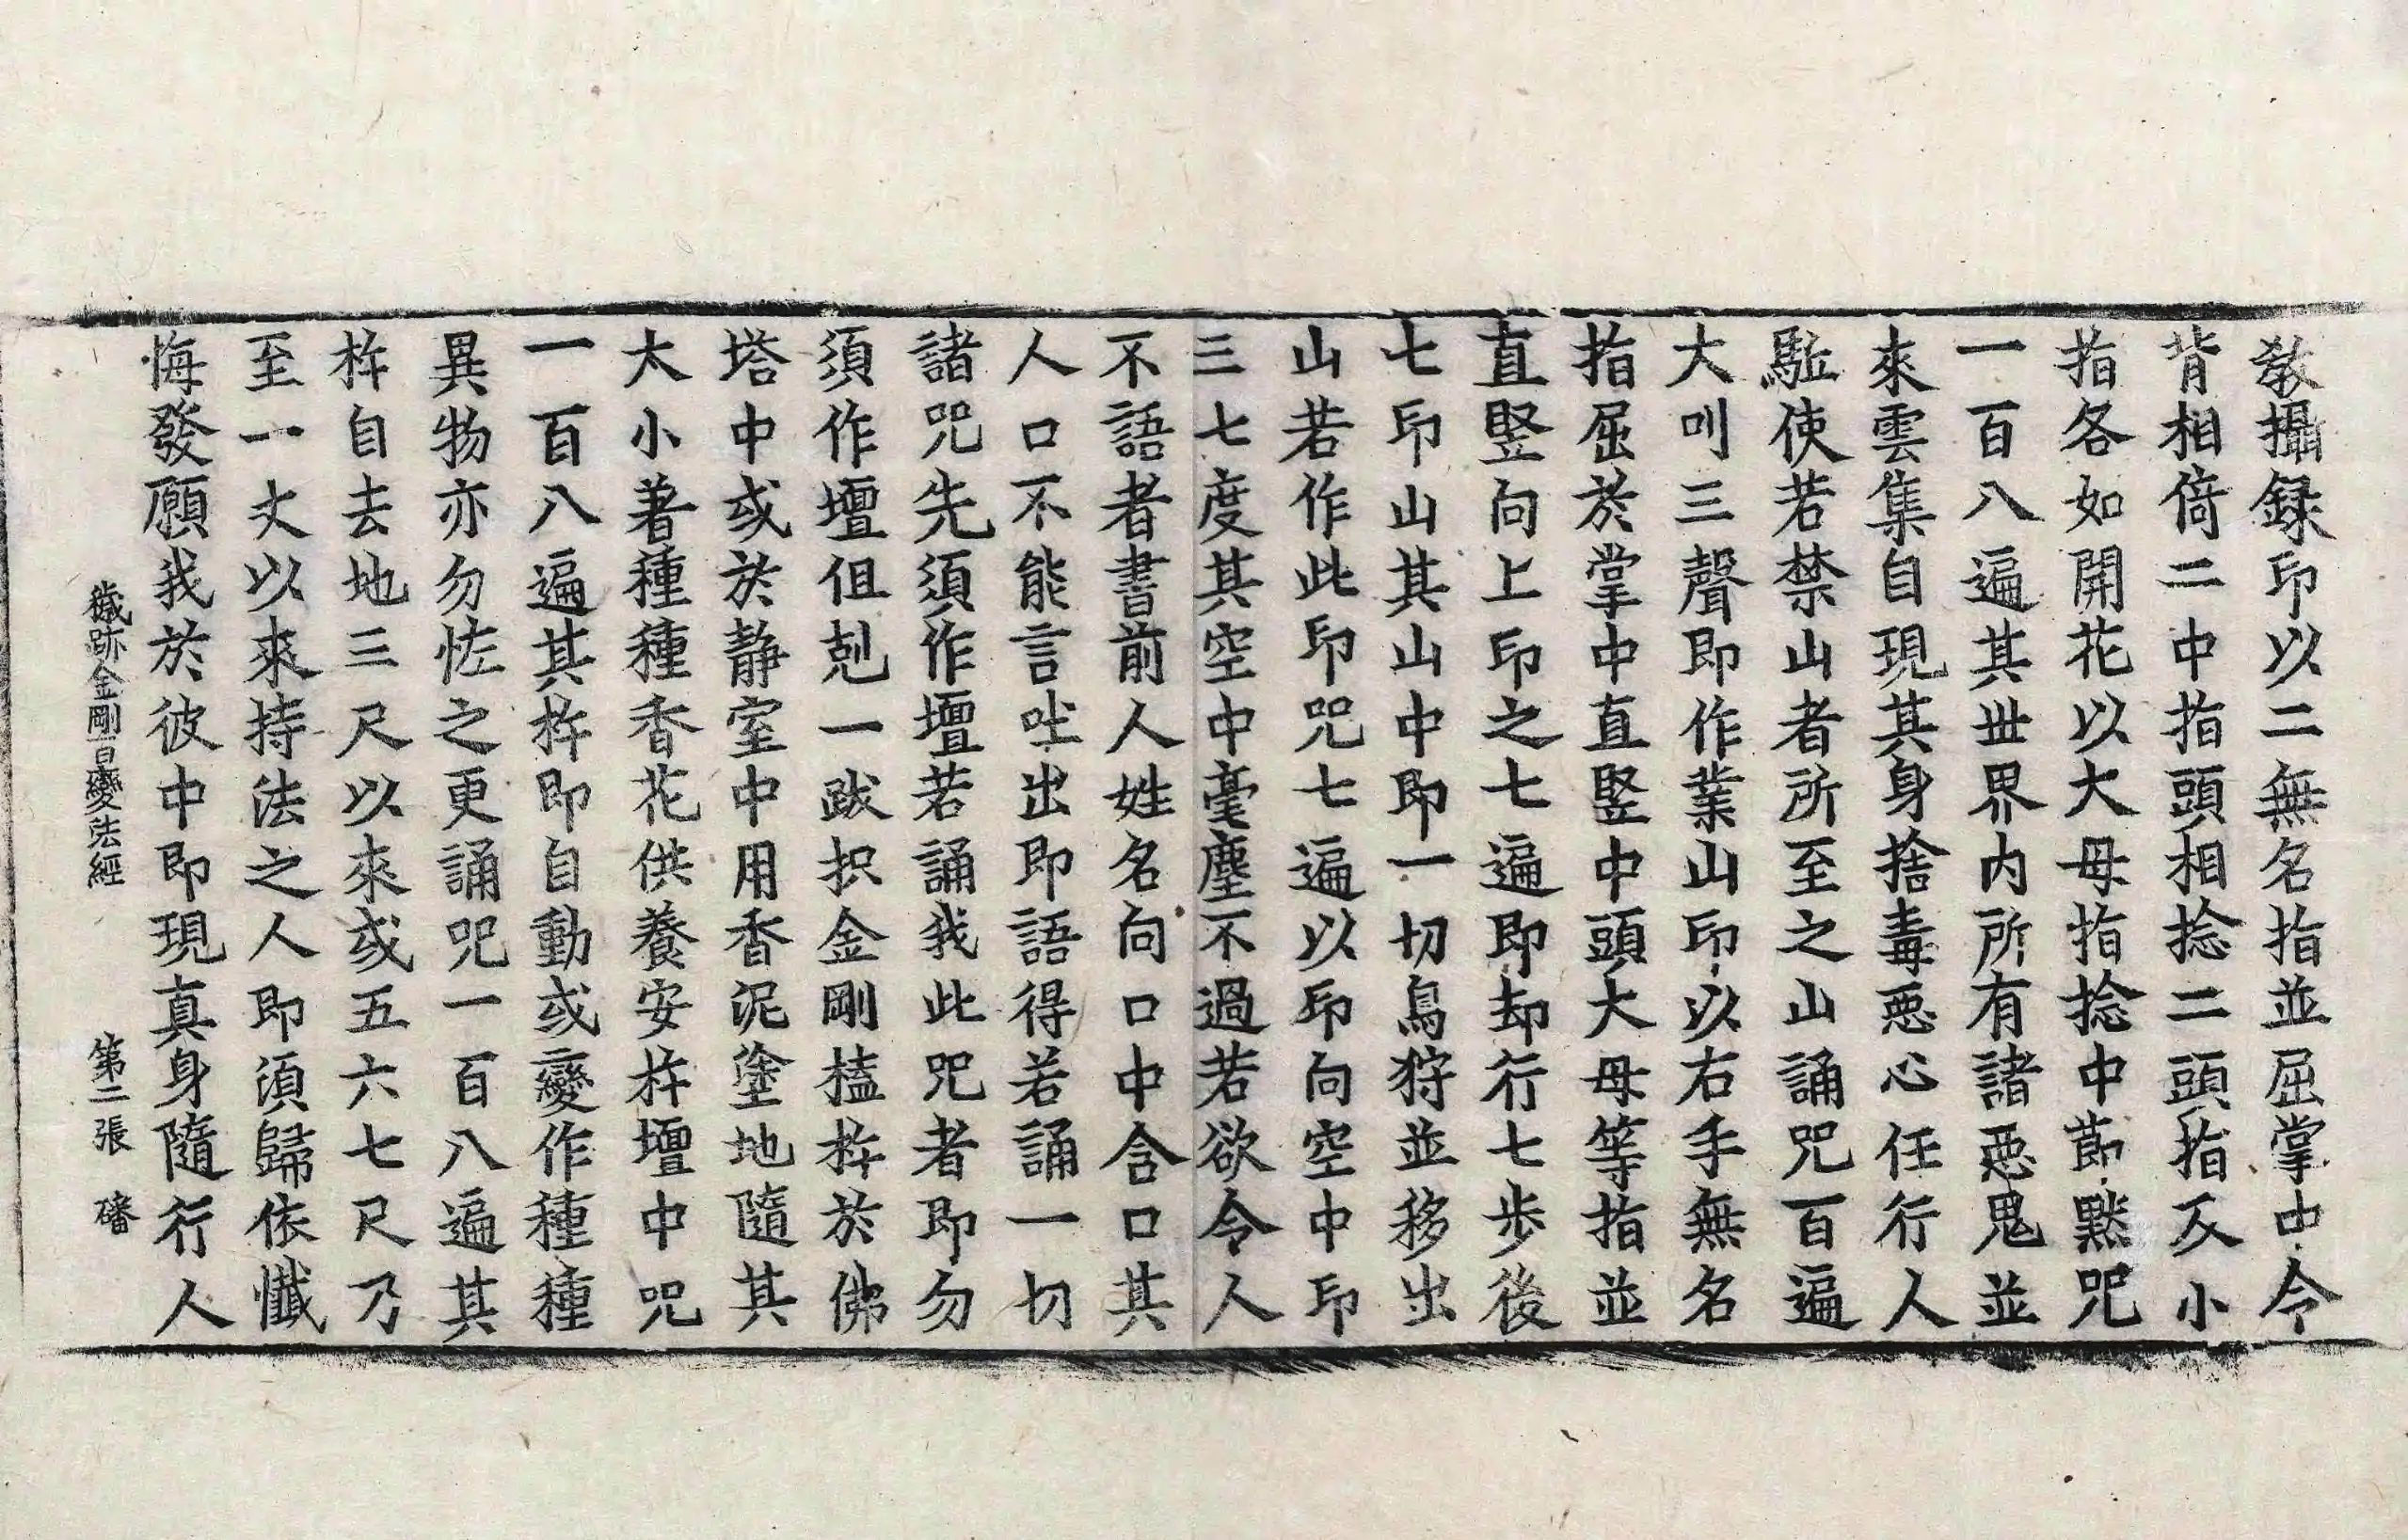 敎攝録印以二無名指並屈掌中令
背相倚二中指頭相捻二頭指仄小
指各如開花以大母指捻中節默呪
一百八遍其丗界内所有諸惡鬼並
來雲集自現其身捨毒惡心任行人
駈使若禁山者所至之山誦呪百遍
大叫三聲即作業山印以右手無名
指屈於掌中直竪中頭大母等指並
直竪向上印之七遍即却行七步後
七印山其山中即一切鳥狩並移出
山若作此印呪七遍以印向空中印
三七度其空中毫塵不過若欲令人
不語者書前人姓名向口中含口其
人口不能言吐出即語得若誦一切
諸呪先須作壇若誦我此呪者即勿
須作壇但剋一跋抧金剛榼杵於佛
塔中或於静室中用香泥塗地隨其
大小著種種香花供養安杵壇中呪
一百八遍其杵即自動或變作種種
異物亦勿恠之更誦呪一百八遍其
杵自去地三尺以來或五六七尺乃
至一丈以來持法之人即須歸依懺
悔發願我於彼中即現真身隨行人
穢跡金剛百變法經 第二張 磻